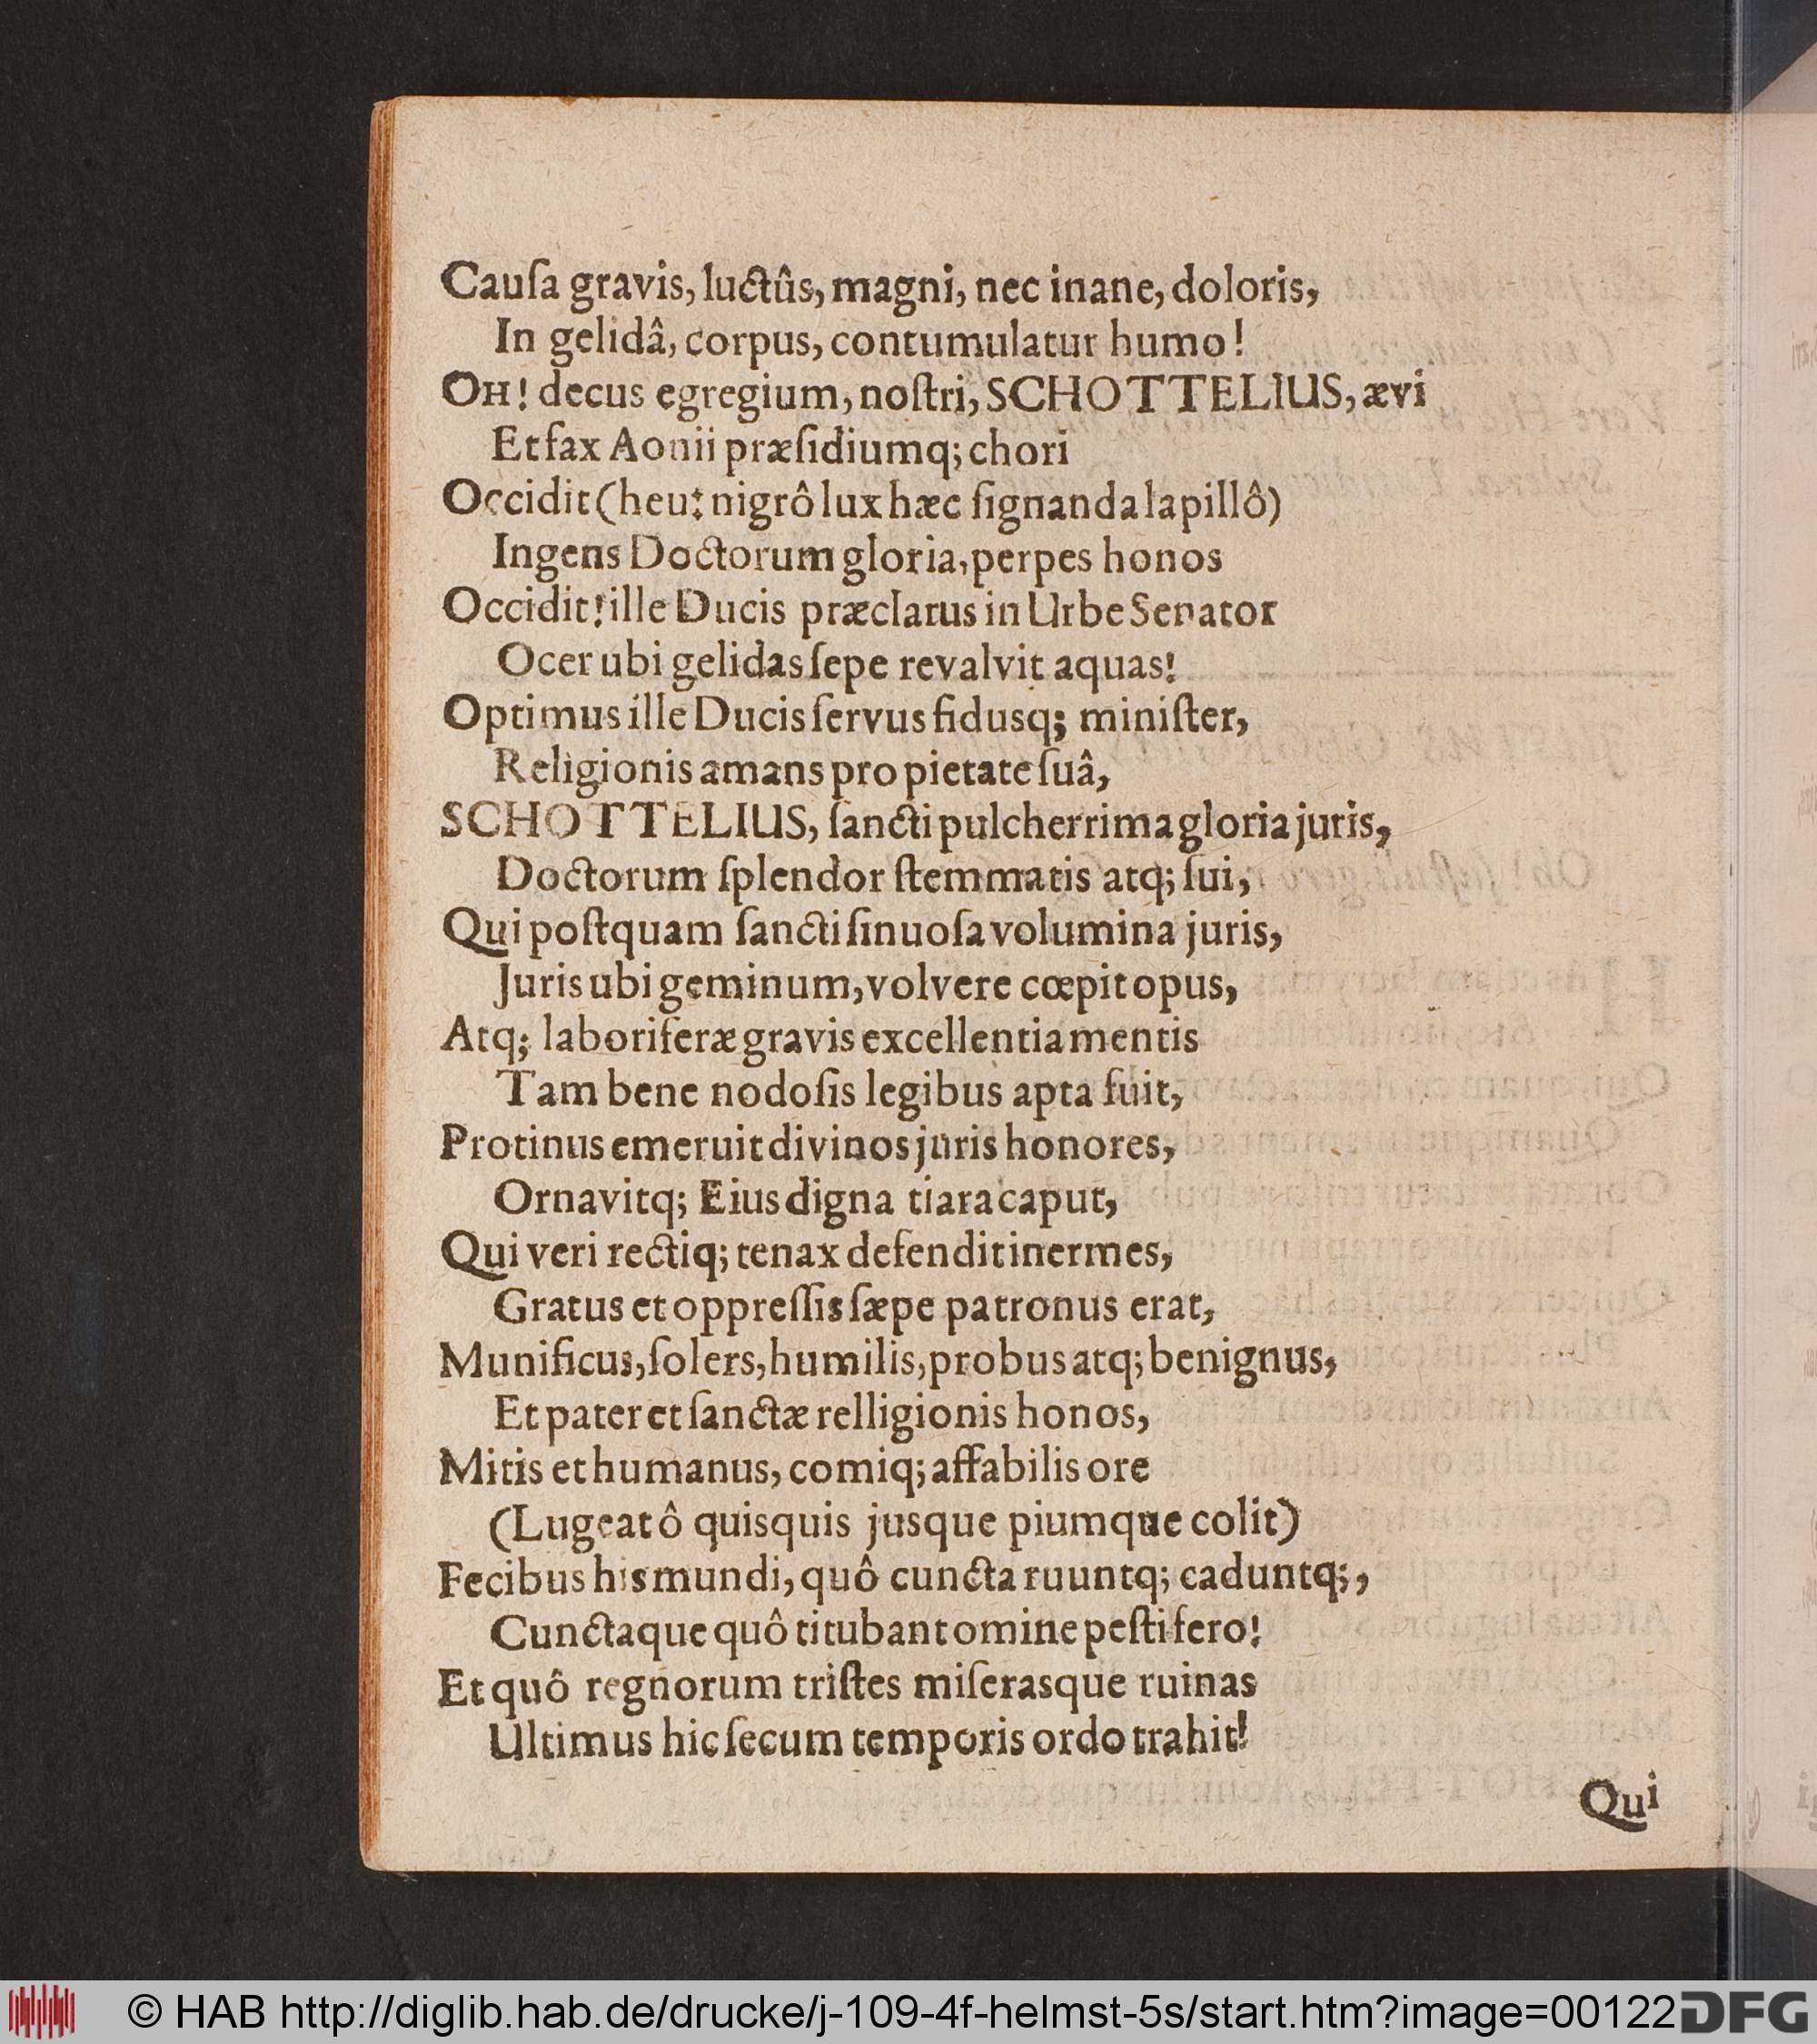 Cauſa gravis, luctûs, magni, nec inane, doloris,
In gelidâ, corpus, contumulatur humo!
OH! decus egregium, noſtri, SCHOTTELIUS, ævi
Et fax Aonii præſidiumq; chori
Occidit (heu! nigrô lux hæc ſignanda lapillô)
Ingens Doctorum gloria, perpes honos
Occidit! ille Ducis præclarus in Urbe Senator
Ocer ubi gelidas ſepe revalvit aquas!
Optimus ille Ducis ſervus fidusq; miniſter,
Religionis amans pro pietate ſuâ,
SCHOTTELIUS, ſancti pulcherrima gloria juris,
Doctorum ſplendor ſtemmatis atq; ſui,
Qui poſtquam ſancti ſinuoſa volumina juris,
Juris ubi geminum, volvere cœpit opus,
Atq; laboriferæ gravis excellentia mentis
Tam bene nodoſis legibus apta fuit,
Protinus emeruit divinos juris honores,
Ornavitq; Eius digna tiara caput,
Qui veri rectiq; tenax defendit inermes,
Gratus et oppreſſis ſæpe patronus erat,
Munificus, ſolers, humilis, probus atq; benignus,
Et pater et ſanctæ relligionis honos,
Mitis et humanus, comiq; affabilis ore
(Lugeat ô quisquis jusque piumque colit)
Fecibus his mundi, quô cuncta ruuntq; caduntq;,
Cunctaque quô titubant omine peſtifero!
Et quô regnorum triſtes miſerasque ruinas
Ultimus hic ſecum temporis ordo trahit!
Qui
© HAB http://diglib.hab.de/drucke/j-109-4f-helmst-5s/start.htm?image=00122
DFG